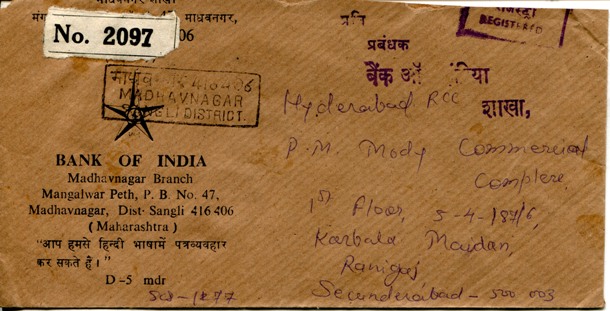 माधवनगर शाखा
माधवनगर,
No. 2097
06
MADHAVNAGAR
SANGLI DISTRICT.
BANK OF INDIA
Madhavnagar Branch
Mangalwar Peth, P. B. No. 47,
Madhavnagar, Dist. Sangli 416 406
( Maharashtra )
"आप हमसे हिन्दी भाषामें पत्रव्यवहार
कर सकते हैं ।"
D-5 mdr
प्रति
प्रबंधक
बैंक ऑ
शाखा,
रजिस्ट्री
REGISTERED
Hyderabad RCC
P.M. Mody Commercial
Complex,
1st Floor, 5-4-187/6,
Karbala Maidan,
Ranigaj
Secunderabad - 500 003